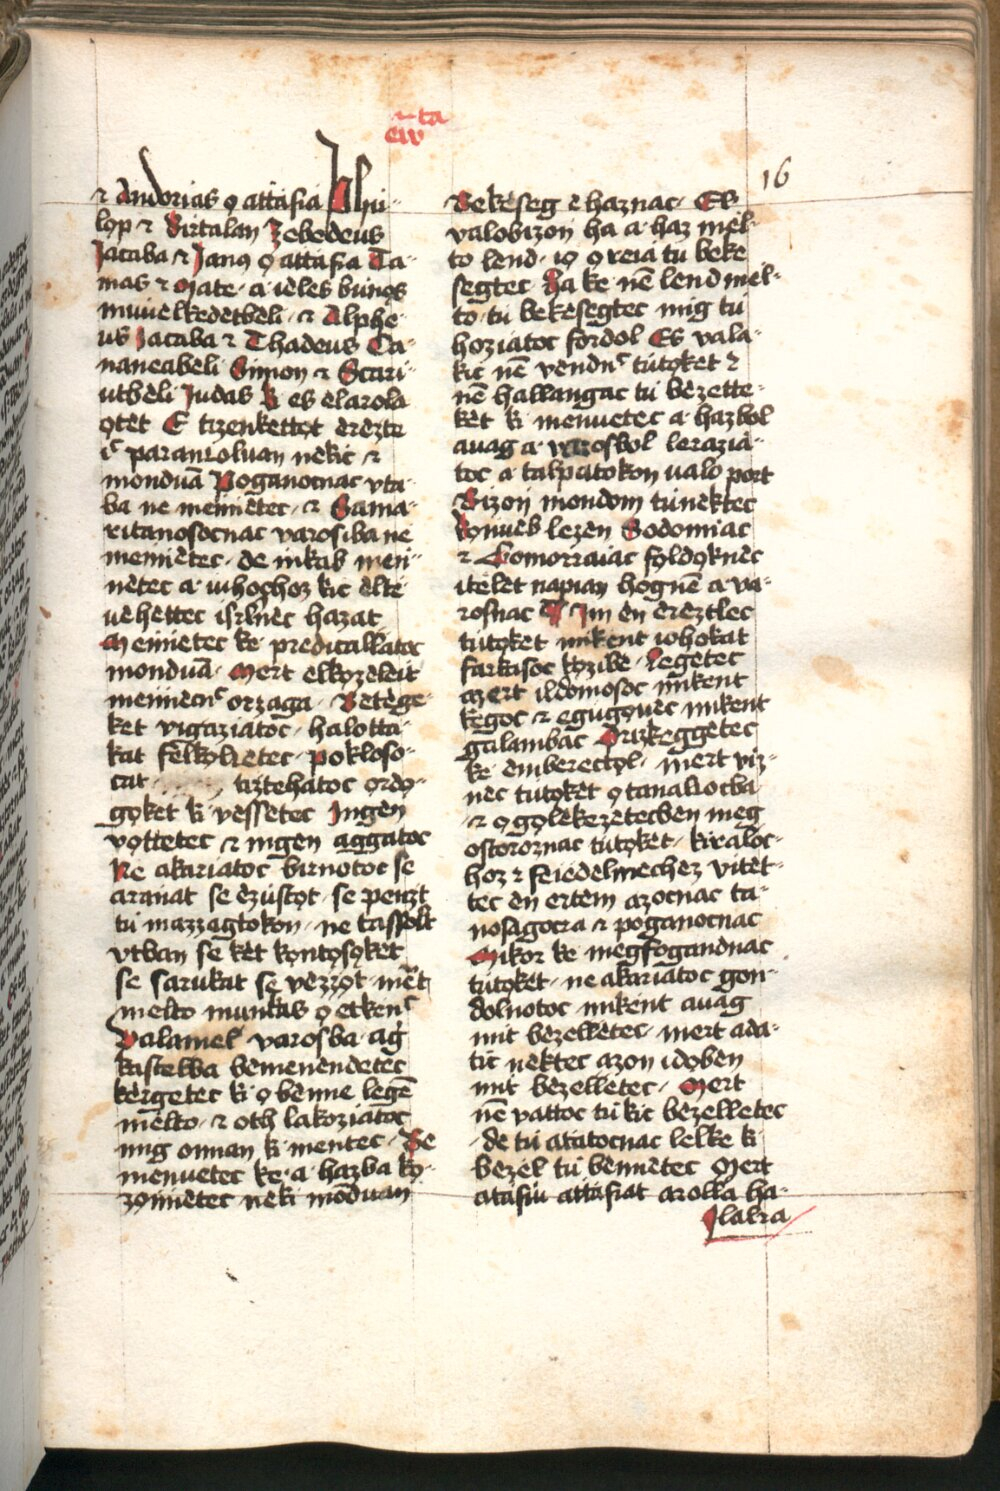 ta
ew
16
⁊ Andorias ǫ attafia Phi-
lǫp ⁊ Birtalan Zebedeus
Jacaba ⁊ Janǫs ǫ attafia Ta-
mas ⁊ Mate · a ieles bunǫs
miuuelkedetbeli · ⁊ Alphe-
us Jacaba ⁊ Thadeus Ca-
naneabeli Simon ⁊ Scari-
utbeli Judas Ki es elarola
ǫtèt E tizenkettǫt ereztè
ic parančoluan nekic ⁊
monduā Poganocnac vta-
ba ne menietec · ⁊ Sama-
ritanosocnac varosiba ne
menietec · de inkab men-
nètec a · iuhoċhoz kic èltè-
uèhèttec isrlnèc hazat
Menietec ke predicallatoc
monduā · Mert elkǫzeleit
mennècnc orzaga · Betège-
ket vigaziatoc · halotta-
kat fèlkǫlèètec · pokloso-
cat tiztehatoc ǫrdǫ-
gǫket ki vèssetec Ingen
vǫttetec ⁊ ingèn aggatoc
Ne akariatoc birnotoc se
arañat se èzustǫt · se penzt
tu mazzagtokon · ne tassolt
vtban se kèt kǫntǫsǫkèt
se sarukat se vèzzǫt · mèrt
melto munkas ǫ etkenc
Valamel varosba · ag
kastelba bèmenèndètec
kèrgetec ki ǫ bènne legē
mèlto · ⁊ oth lakoziatoc
mig onnan ki mentec · Be
menuetec ke · a · hazba kǫ-
zǫnietec neki mōduan
Bekeseg è haznac · Es
valobizon ha a · haz mèl-
to lend · iǫ ǫ reia tu beke
segtec Ha ke nē lend mel-
to tu bekesegtec mig tu
hoziatoc fordol Es vala-
kic nē vèndnc tutǫket ⁊
nē hallangac tu bèzette-
kèt ki menuetec a · hazbol
auag a · varosbol lerazia-
toc a talpatokon ualo port
Bizon mondom tunèktec
Kǫnueb lezèn Sodomiac
⁊ Gomorraiac fǫldǫknèc
itèlèt napian hognē a va-
rosnac Im èn èrèztlec
tutǫkèt mikent iuhokat
farkasoc kǫzibè · Legètec
azert ildomosoc mikent
kègoc ⁊ egugǫuèc mikènt
galambac Ǫrizkeggètec
ke èmberèctǫl · mèrt viz-
nèc tutǫkèt ǫ tanallocba
⁊ ǫ gǫlekezètecben meg
ostoroznac tutǫkèt · kiraloc-
hoz ⁊ feiedelmechez vitèt-
tec èn èrtem azocnac ta-
nosagocra ⁊ poganocnac
Mikor ke megfogandnac
tutǫkèt · ne akariatoc gon-
dolnotoc mikènt auag
mit bèzellètec · mèrt ada-
tic nèktec azon idǫbèn
mit bèzellètec · Mert
nē vattoc tu kic bèzelletec
· de tu atatocnac lelke ki
bèzèl tu bènnètec Mert
atafiu attafiat arolla ha-
lalra